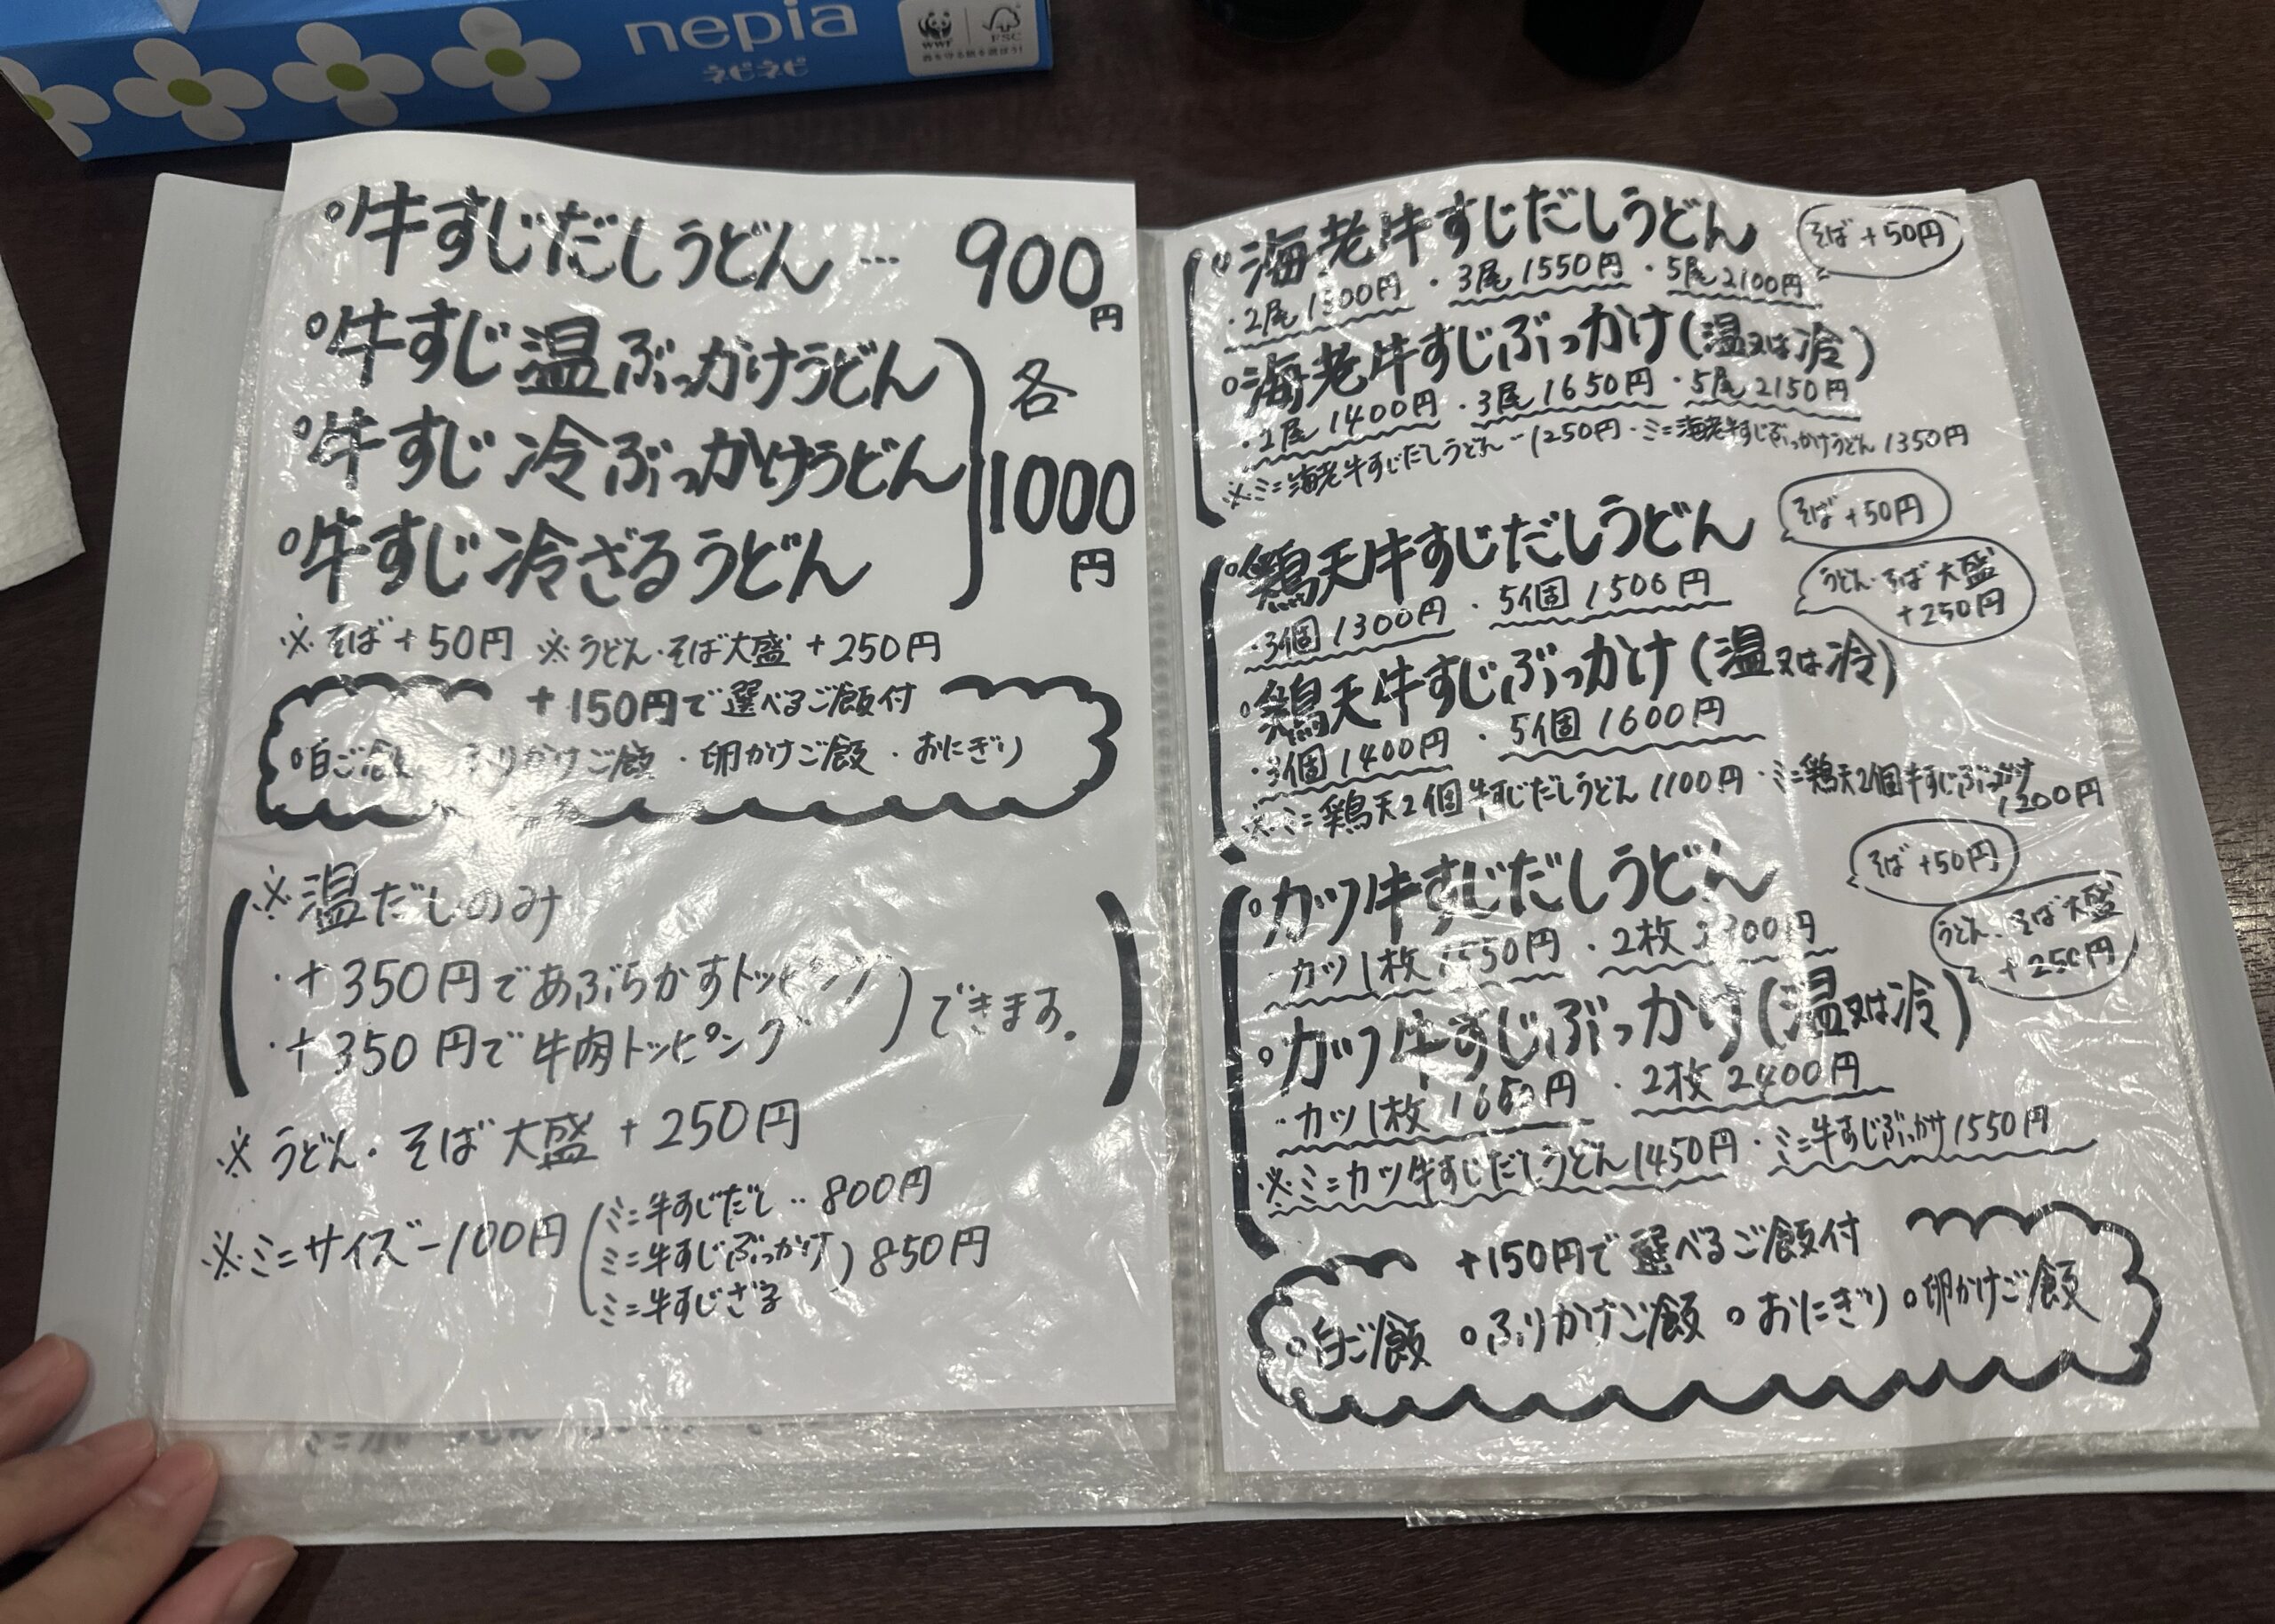 nepia
ネピネピ
WWF
FSC
°牛すじだしうどん… 900円
°牛すじ温ぶっかけうどん
°牛すじ冷ぶっかけうどん
°牛すじ冷ざるうどん
各1000円
※そば+50円 ※うどん・そば大盛+250円
+150円で選べるご飯付
°白ご飯・ふりかけご飯・卵かけご飯・おにぎり
※温だしのみ
・+350円であぶらかすトッピング
・+350円で牛肉トッピング
できます。
※うどん・そば大盛+250円
※ミニサイズ-100円
ミニ牛すじだし‥800円
ミニ牛すじぶっかけ
ミニ牛すじざる
850円
°海老牛すじだしうどん
そば+50円
・2尾1300円・3尾1550円・5尾2100円
°海老牛すじぶっかけ(温又は冷)
・2尾1400円・3尾1650円・5尾2150円
※ミニ海老牛すじだしうどん‥1250円・ミニ海老牛すじぶっかけうどん1350円
°鶏天牛すじだしうどん
そば+50円
うどん・そば大盛
+250円
・3個1300円・5個1500円
°鶏天牛すじぶっかけ(温又は冷)
・3個1400円・5個1600円
※ミニ鶏天2個牛すじだしうどん1100円・ミニ鶏天2個牛すじぶっかけ
1200円
°カツ牛すじだしうどん
そば+50円
うどん・そば大盛
+250円
・カツ1枚1550円・2枚2300円
°カツ牛すじぶっかけ(温又は冷)
・カツ1枚1650円・2枚2400円
※ミニカツ牛すじだしうどん1450円・ミニ牛すじぶっかけ1550円
+150円で選べるご飯付
°白ご飯 °ふりかけご飯 °おにぎり °卵かけご飯